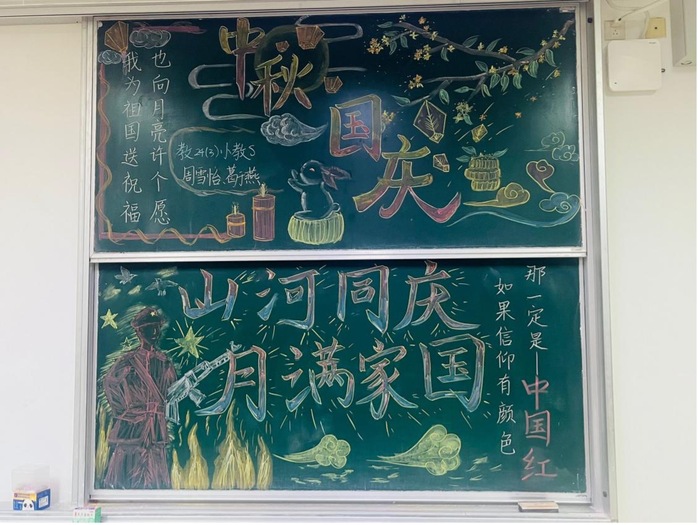 中秋
国庆
我为祖国送祝福
也向月亮许个愿
教24(3)小教S
周雪怡、葛于燕
山河同庆
月满家国
如果信仰有颜色
那一定是—中国红